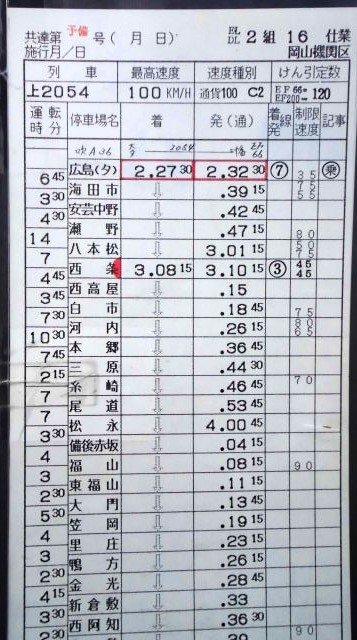 共達第 予備 号 ( 月 日)
EL DL 2組 16 仕業
施行月/日
岡山機関区
列車 最高速度 速度種別 けん引定数
上2054 100 KM/H 通貨100 C2 EF66= EF200= 120
運転時分 停車場名 着 発(通) 着発線 制限速度 記事
広島(タ) 2.27 30 2.32 30 ⑦ 35 乗
6 45
海田市 ⇩ .39 15 75 55
3 30
安芸中野 ⇩ .42 45
4 30
瀬野 ⇩ .47 15 80
14
八本松 ⇩ 3.01 15 50 75
7
西条 3.08 15 3.10 15 ③ 45 45
4 45
西高屋 ⇩ .15
3 45
白市 ⇩ .18 45 75
7 30
河内 ⇩ .26 15 80 65
10 30
本郷 ⇩ .36 45
7 45
三原 ⇩ .44 30
2 15
糸崎 ⇩ .46 45 70
7
尾道 ⇩ .53 45
7
松永 ⇩ 4.00 45
3 30
備後赤坂 ⇩ .04 15
4
福山 ⇩ .08 15 90
3
東福山 ⇩ .11 15
2 30
大門 ⇩ .13 45
5 30
笠岡 ⇩ .19 15
4
里庄 ⇩ .23 15
3
鴨方 ⇩ .26 15
2 30
金光 ⇩ .28 45
4 15
新倉敷 ⇩ .33
3 30
西阿知 ⇩ .36 30 90